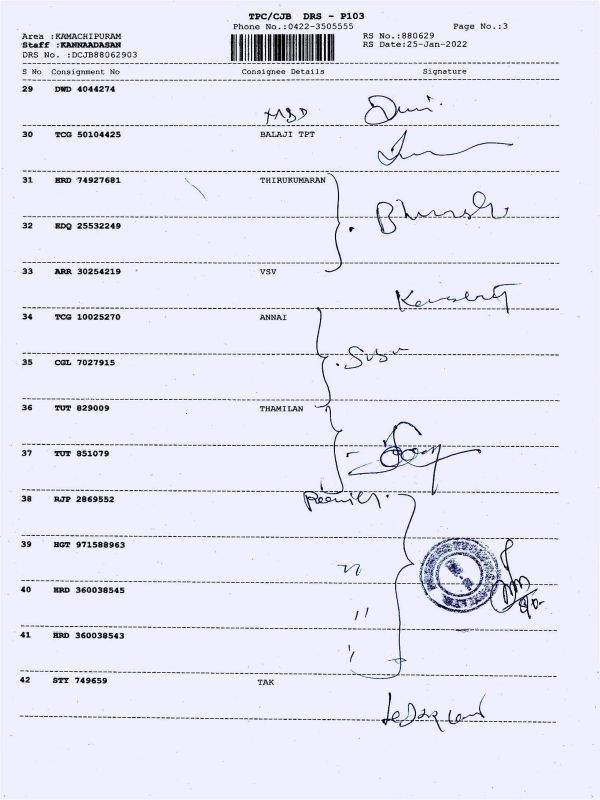 TPC/CJB DRS - P103
Phone No.:0422-3505555 Page No.:3
Area :KAMACHIPURAM RS No.:880629
Staff :KANNAADASAN RS Date:25-Jan-2022
DRS No. :DCJB88062903
S No Consignment No Consignee Details Signature
29 DWD 4044274
30 TCG 50104425 BALAJI TPT
31 HRD 74927681 THIRUKUMARAN
32 EDQ 25532249
33 ARR 30254219 VSV
34 TCG 10025270 ANNAI
35 CGL 7027915
36 TUT 829009 THAMILAN
37 TUT 851079
38 RJP 2869552
39 HGT 971588963
40 HRD 360038545
41 HRD 360038543
42 STY 749659 TAK